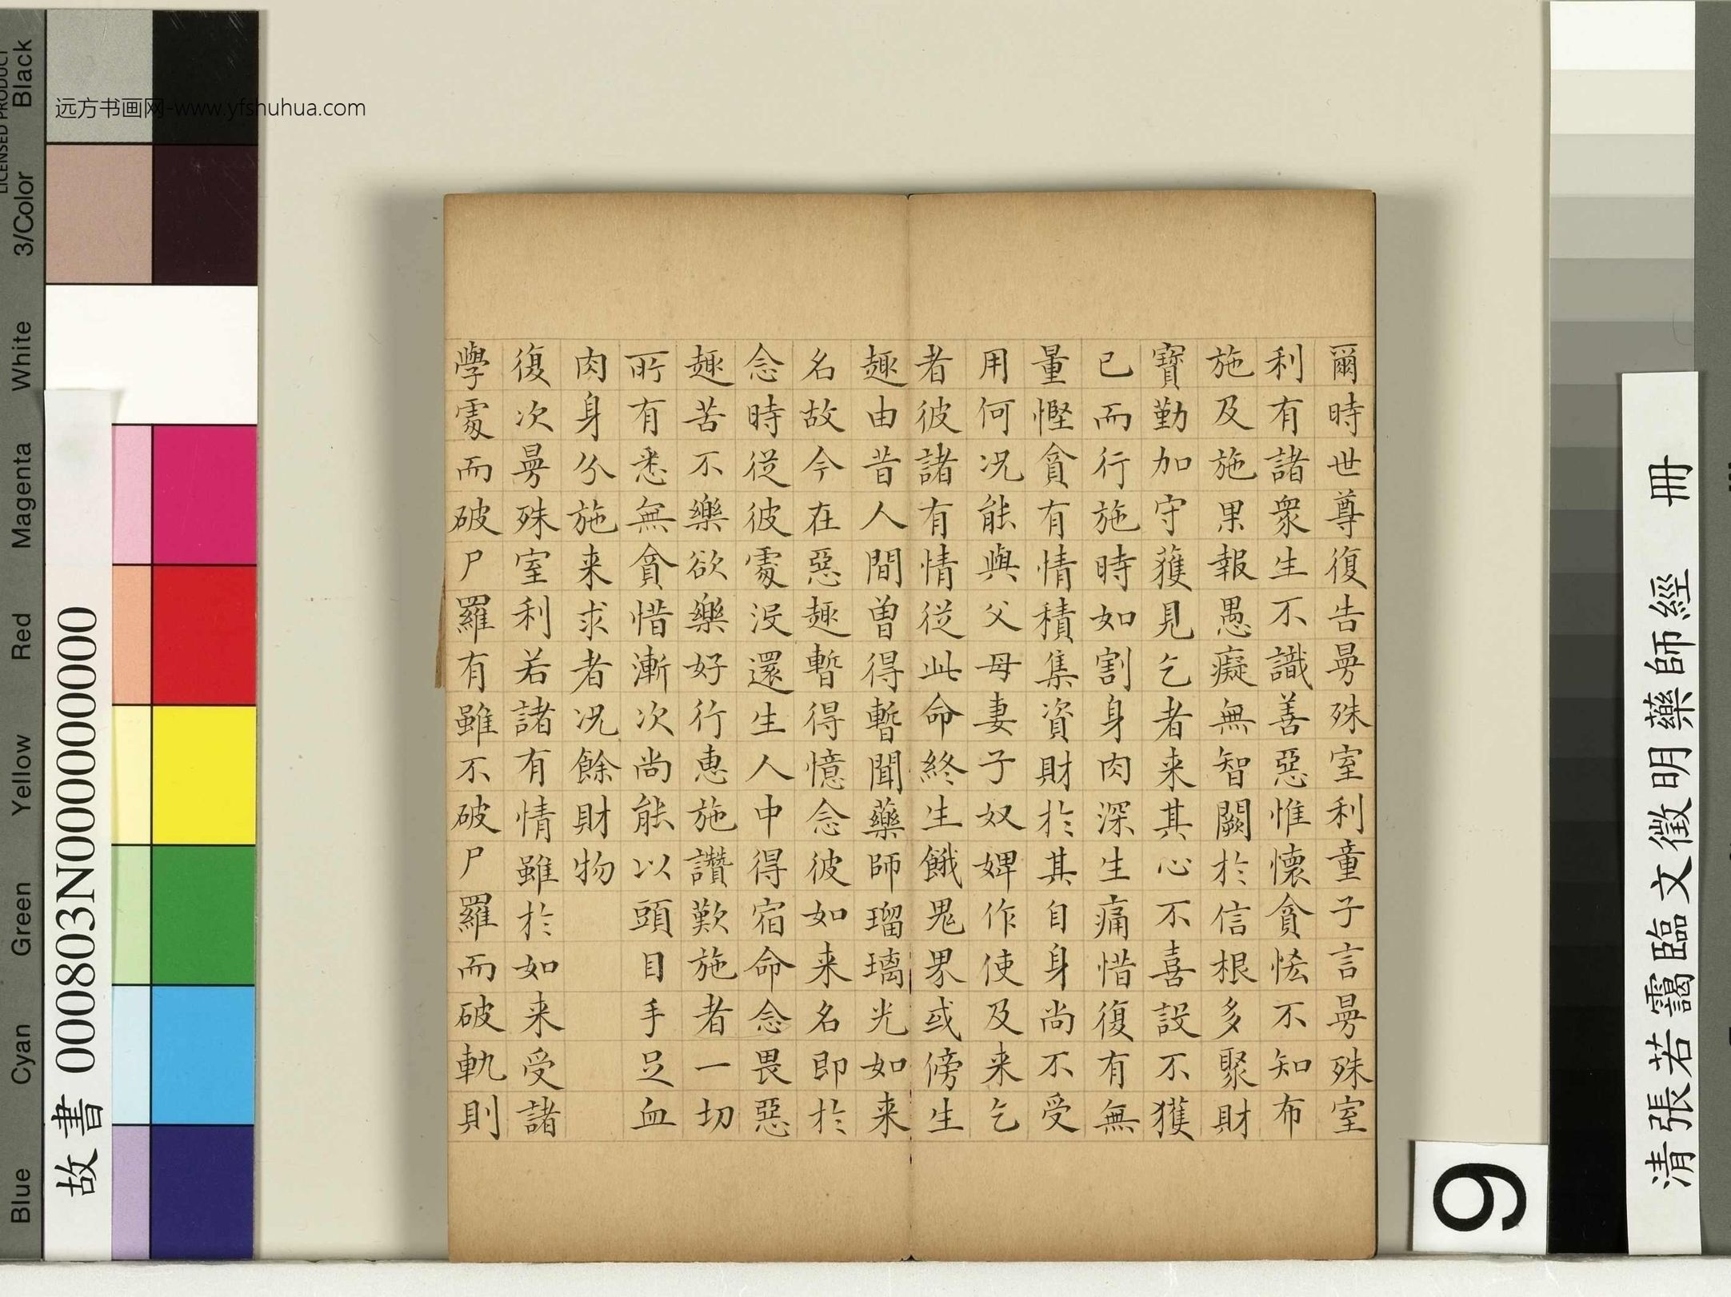 爾時世尊復告曼殊室利童子言曼殊室
利有諸衆生不識善惡惟懷貪恡不知布
施及施果報愚癡無智闕於信根多聚財
寶勤加守獲見乞者来其心不喜設不獲
已而行施時如割身肉深生痛惜復有無
量慳貪有情積集資財於其自身尚不受
用何况能與父母妻子奴婢作使及来乞
者彼諸有情從此命終生餓鬼界或傍生
趣由昔人間曽得暫聞藥師瑠璃光如来
名故今在惡趣暫得憶念彼如来名即於
念時從彼處没還生人中得宿命念畏惡
趣苦不樂欲樂好行惠施讚歎施者一切
所有悉無貪惜漸次尚能以頭目手足血
肉身分施来求者况餘財物
復次曼殊室利若諸有情雖於如来受諸
學處而破尸羅有雖不破尸羅而破軌則
清張若靄臨文徵明藥師經 冊
9
故書 000803N000000000
远方书画网-www.yfshuhua.com
LICENSED PRODUCT
Black
3/Color
White
Magenta
Red
Yellow
Green
Cyan
Blue